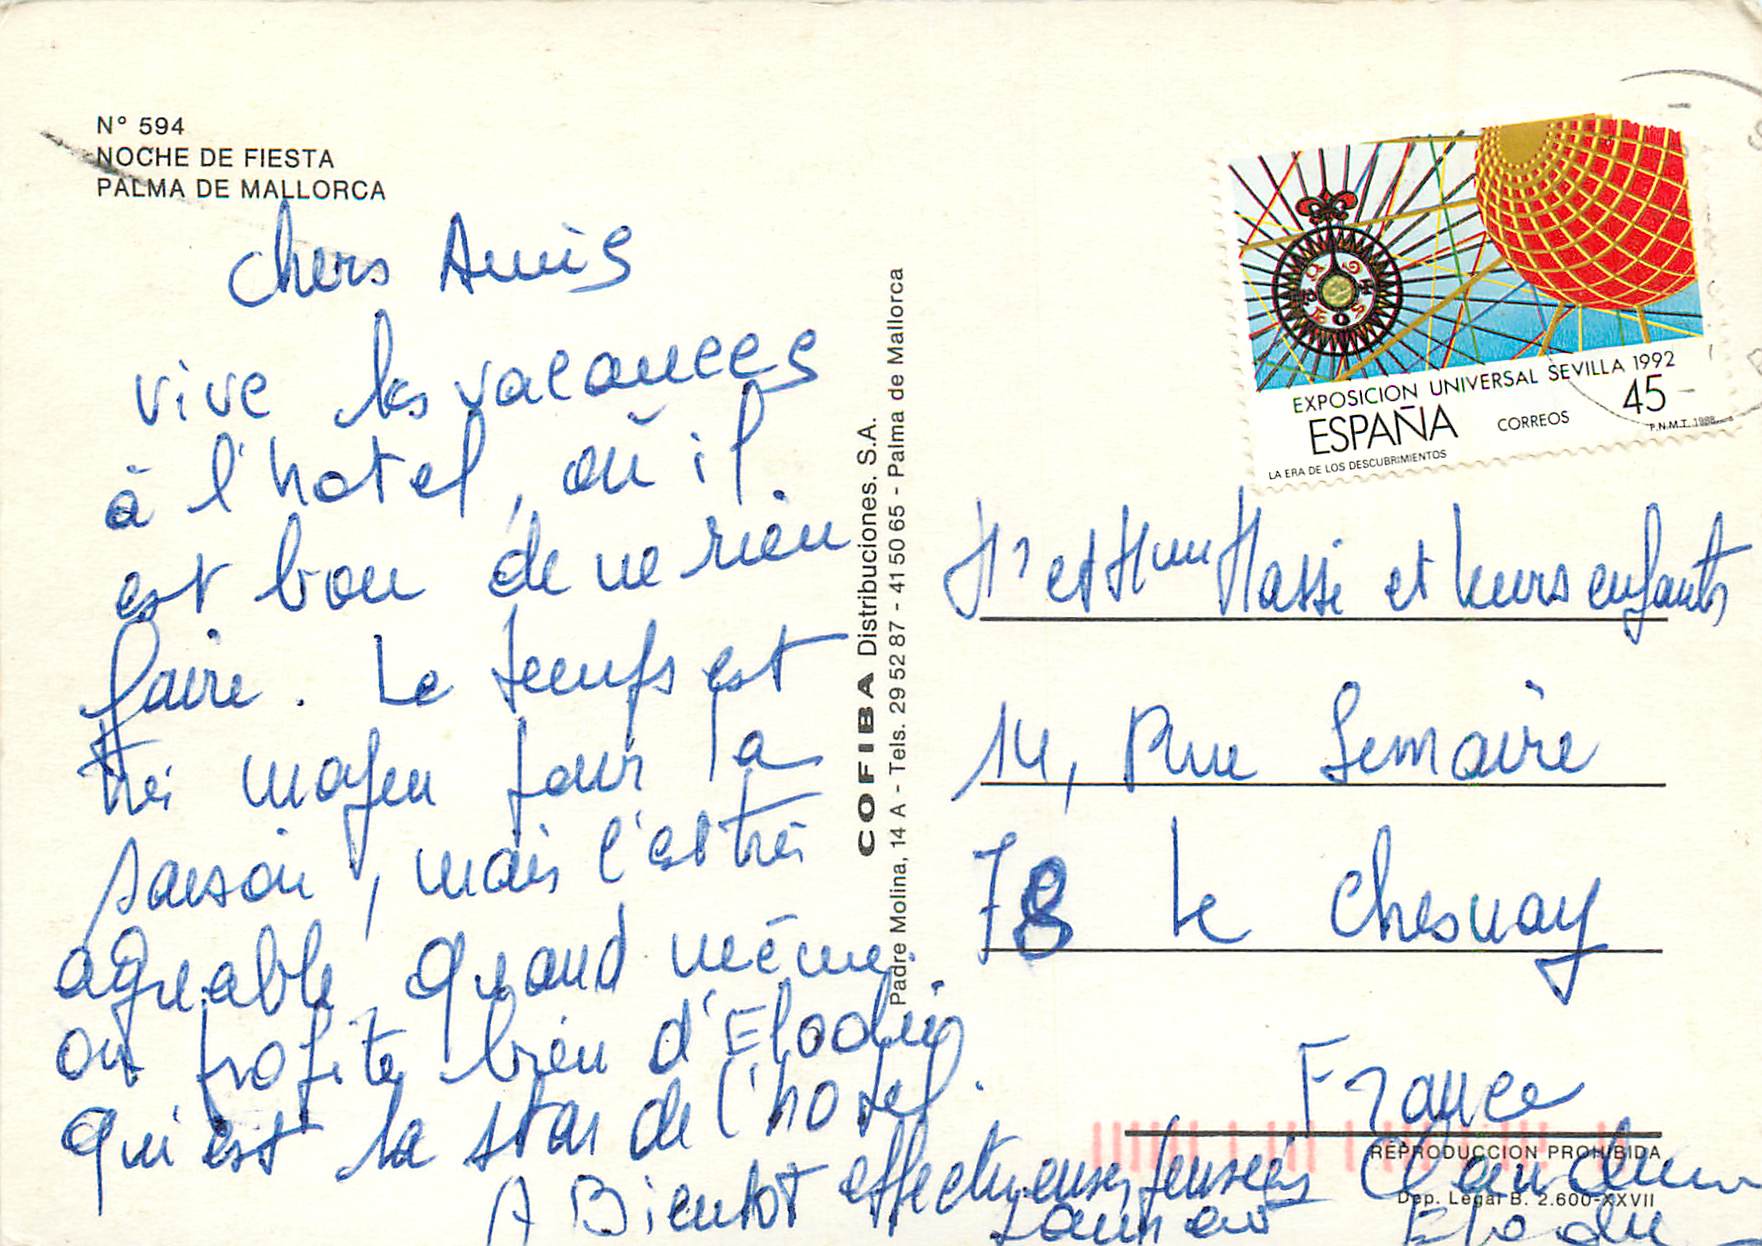 N° 594
NOCHE DE FIESTA
PALMA DE MALLORCA
Chers Amis
vive les vacances
à l'hotel, où il
est bon de ne rien
faire. Le temps est
très moyen pour la
saison, mais c'est très
agreable quand même.
on profite bien d'Elodie
qui est la star de l'hotel.
A Bientot affectueuses pensées Claudine
Laurent Elodie
COFIBA Distribuciones. S.A.
Padre Molina, 14 A - Tels. 29 52 87 - 41 50 65 - Palma de Mallorca
EXPOSICION UNIVERSAL SEVILLA 1992
45
ESPAÑA CORREOS
F.N.M.T. 1988
LA ERA DE LOS DESCUBRIMIENTOS
Mr et Mme Massé et leurs enfants
14, Rue Lemaire
78 Le Chesnay
France
REPRODUCCION PROHIBIDA
Dep. Legal B. 2.600-XXVII